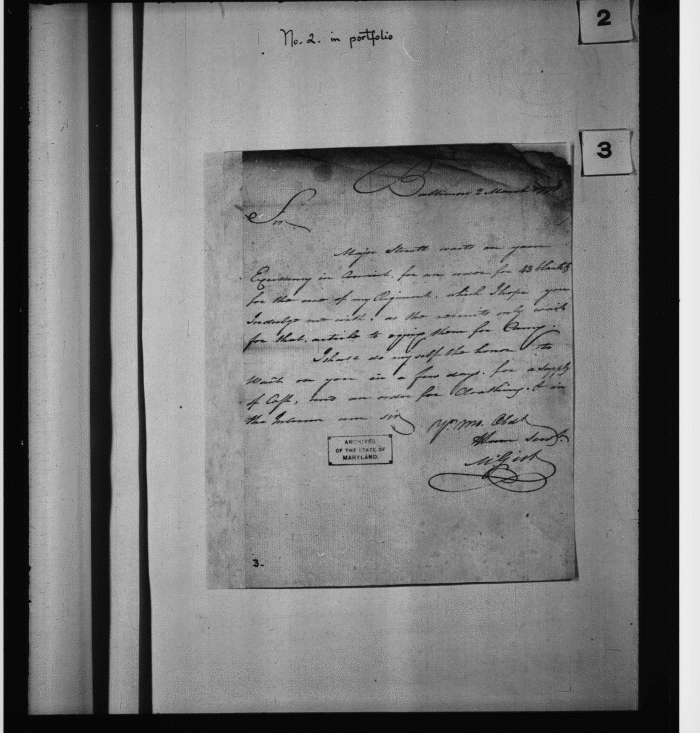 2
No. 2. in portfolio
3
Baltimore 2 March
Sir
Major waits on your
Excellency in Council, for an order for 43 blankets
for the use of my Regiment, which I hope you
Indulge me with, as the recruits only wait
for that article to equip them for Camp.
I shall do myself the honor to
Wait on you in a few days, for a supply
of Cash, and an order for Cloathing. & in
the Interim am sir
Yr. Mo. Obdt
Hum Servt.
M. Gist
ARCHIVES
OF THE STATE OF
MARYLAND.
3-